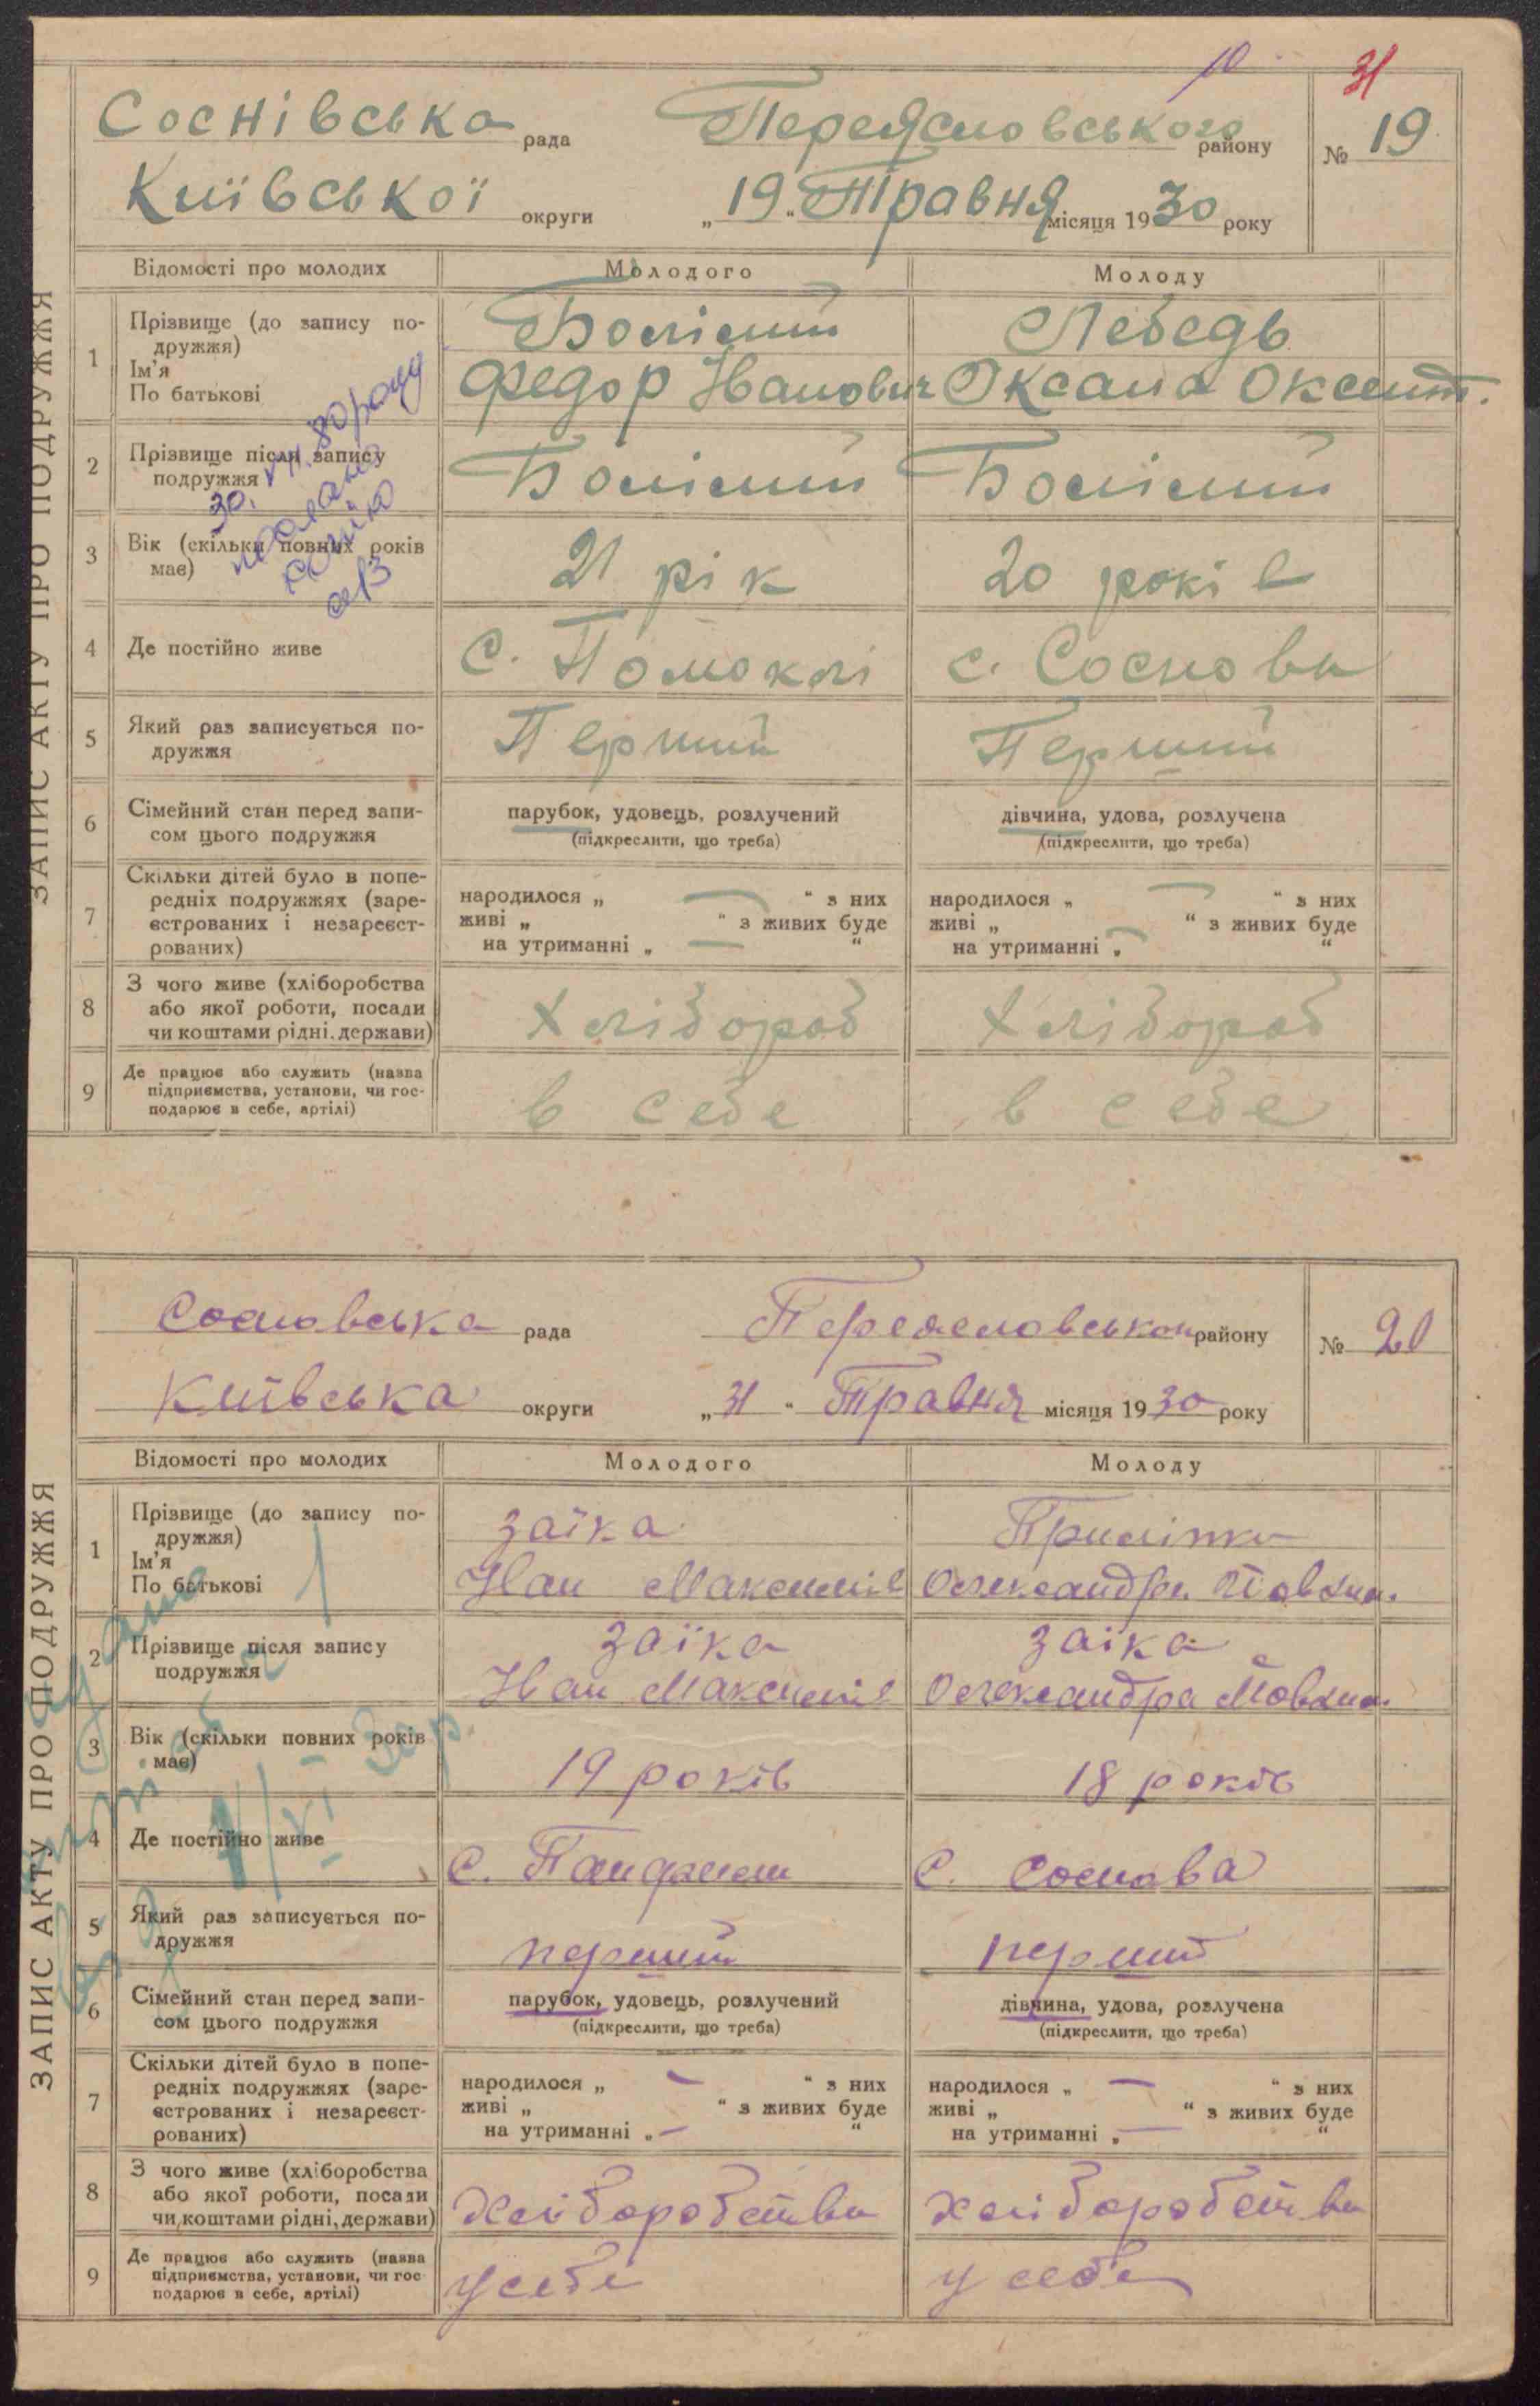 31
Соснівська рада Переясловського району № 19
Київської округи „19“ Травня місяця 1930 року
ЗАПИС АКТУ ПРО ПОДРУЖЖЯ
Відомості про молодих Молодого Молоду
1 Прізвище (до запису подружжя) Болісий Лебедь
Ім'я
По батькові Федор Іванович Оксана Оксент.
2 Прізвище після запису подружжя Болісий Болісий
3 Вік (скільки повних років має) 21 рік 20 років
4 Де постійно живе С. Помоклі с. Соснови
5 Який раз записується подружжя Перший Перший
6 Сімейний стан перед записом цього подружжя парубок, удовець, розлучений дівчина, удова, розлучена
(підкреслити, що треба) (підкреслити, що треба)
7 Скільки дітей було в попередніх подружжях (зареєстрованих і незареєстрованих)
народилося „ — “ з них народилося „ — “ з них
живі „ “ з живих буде живі „ “ з живих буде
на утриманні „ — “ на утриманні „ — “
8 З чого живе (хліборобства або якої роботи, посади чи коштами рідні, держави) Хлібороб Хлібороб
9 Де працює або служить (назва підприємства, установи, чи господарює в себе, артілі) в себе в себе
Сосновська рада району № 20
Київська округи „31“ Травня місяця 1930 року
ЗАПИС АКТУ ПРО ПОДРУЖЖЯ
Відомості про молодих Молодого Молоду
1 Прізвище (до запису подружжя) Заїка
Ім'я
По батькові Іван Максимів Олександра
2 Прізвище після запису подружжя Заїка Заїка
Іван Максимів Олександра
3 Вік (скільки повних років має) 19 років 18 років
4 Де постійно живе С. С. Соснова
5 Який раз записується подружжя перший перший
6 Сімейний стан перед записом цього подружжя парубок, удовець, розлучений дівчина, удова, розлучена
(підкреслити, що треба) (підкреслити, що треба)
7 Скільки дітей було в попередніх подружжях (зареєстрованих і незареєстрованих)
народилося „ — “ з них народилося „ — “ з них
живі „ “ з живих буде живі „ “ з живих буде
на утриманні „ — “ на утриманні „ — “
8 З чого живе (хліборобства або якої роботи, посади чи коштами рідні, держави) хліборобства хліборобства
9 Де працює або служить (назва підприємства, установи, чи господарює в себе, артілі) у себе у себе